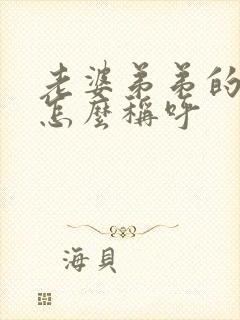 老婆弟弟的
怎麼稱呼
海貝